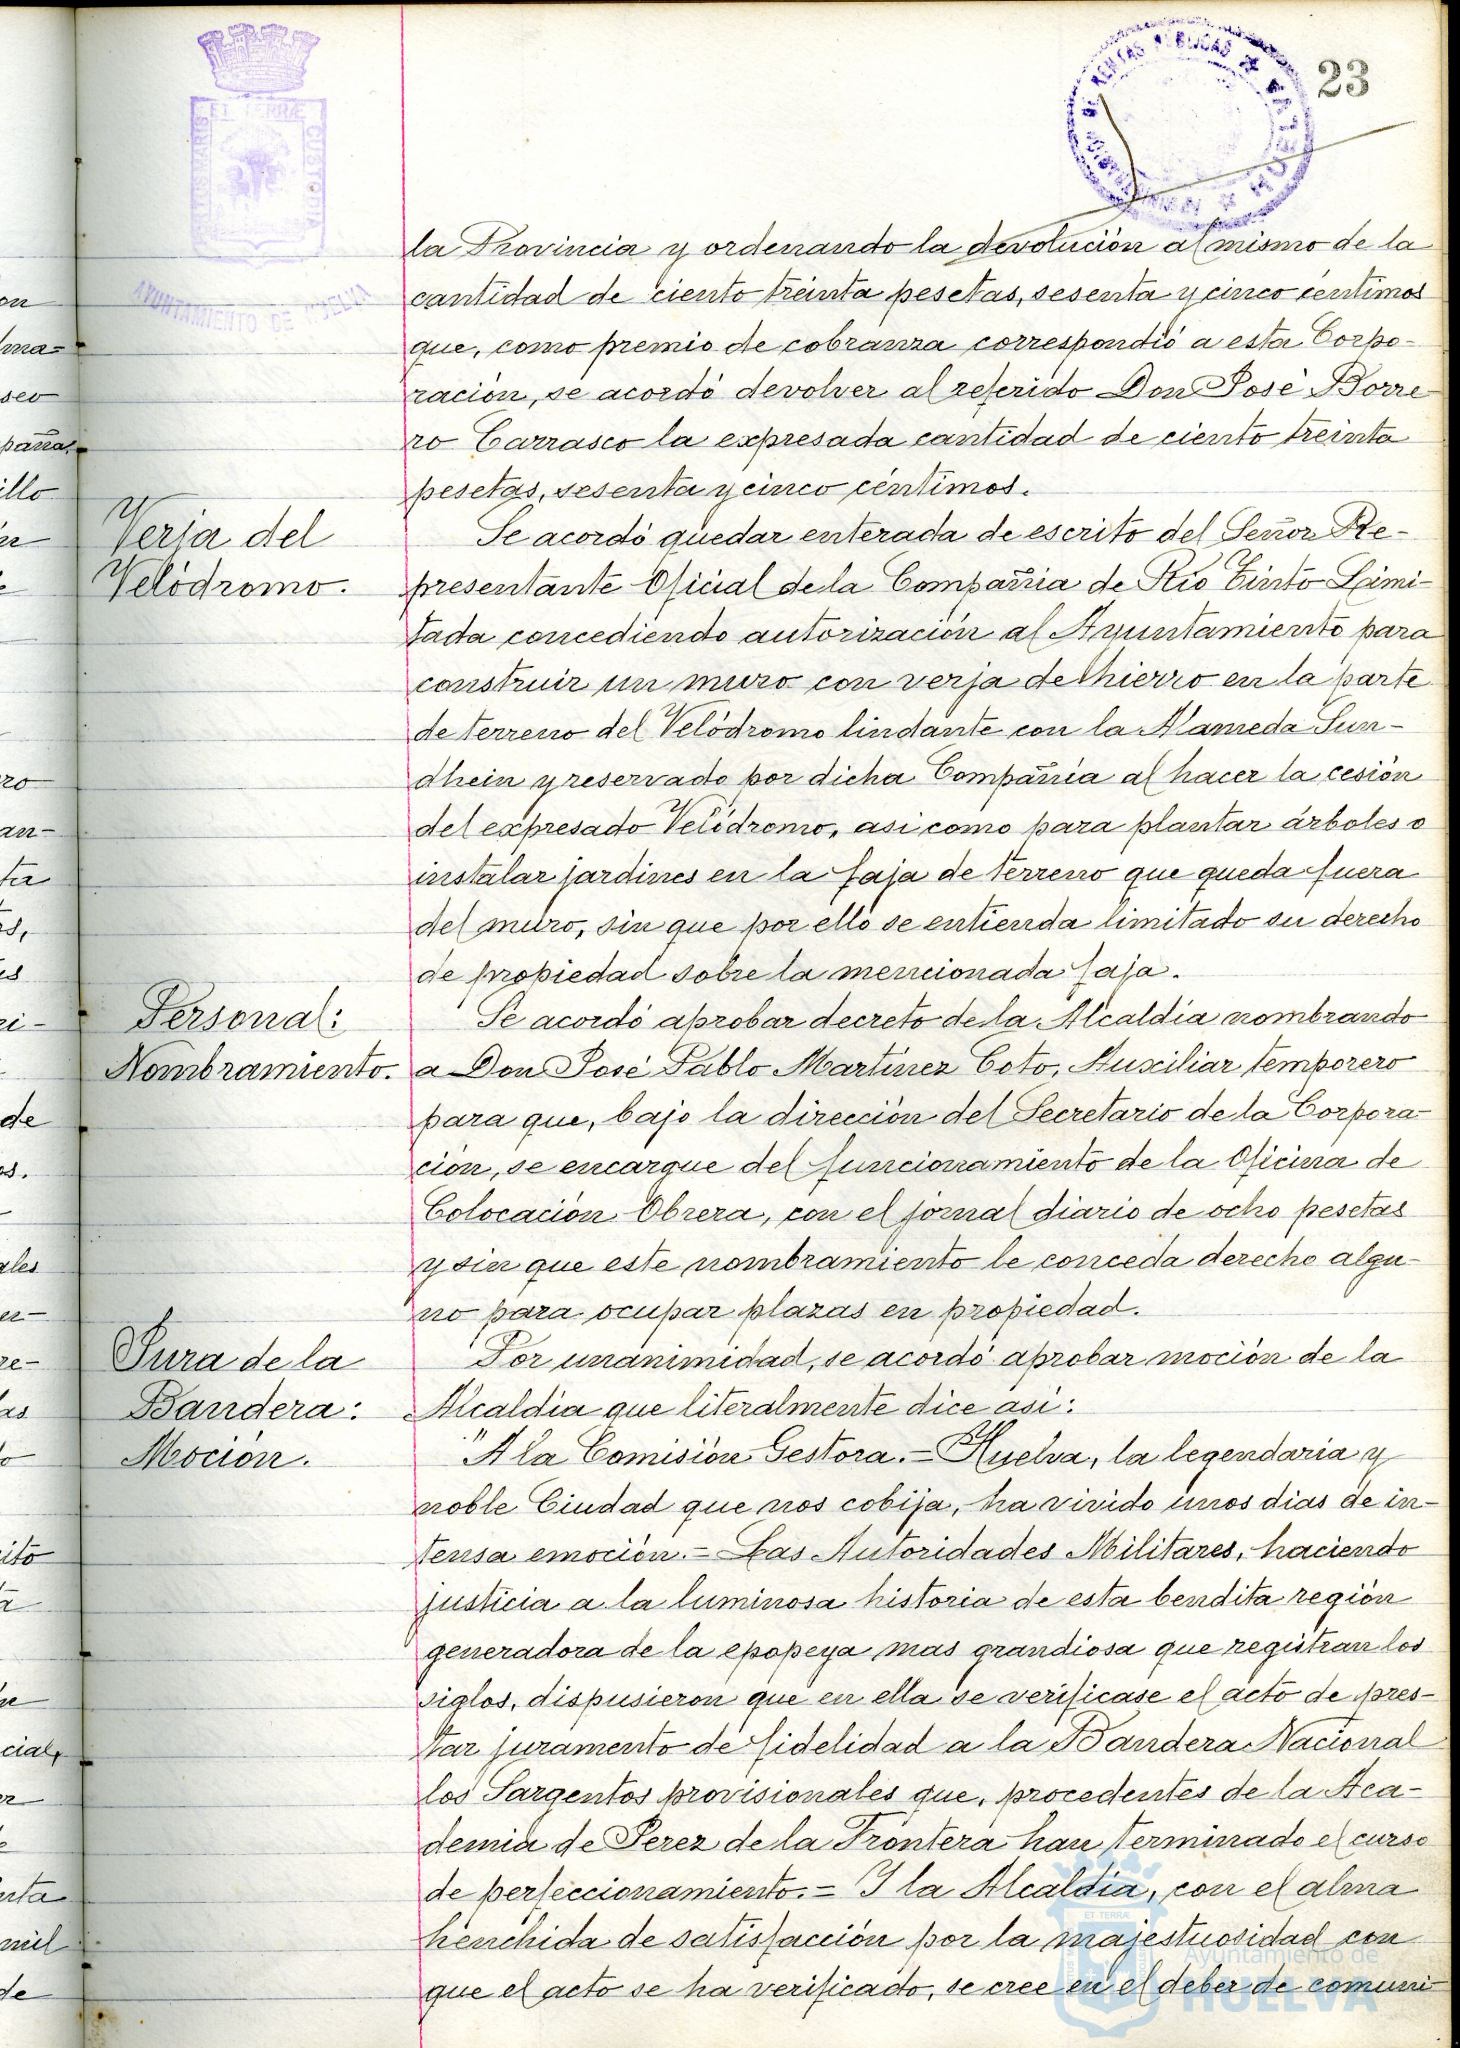 23
PORTUS MARIS ET TERRÆ CUSTODIA
AYUNTAMIENTO DE HUELVA
RENTAS PÚBLICAS HUELVA
la Provincia y ordenando la devolución al mismo de la
cantidad de ciento treinta pesetas, sesenta y cinco céntimos
que, como premio de cobranza correspondió a esta Corpo-
ración, se acordó devolver al referido Don José Borre-
ro Carrasco la expresada cantidad de ciento treinta
pesetas, sesenta y cinco céntimos.
Verja del
Velódromo.
Se acordó quedar enterada de escrito del Señor Re-
presentante Oficial de la Compañia de Rio Tinto Limi-
tada concediendo autorización al Ayuntamiento para
construir un muro con verja de hierro en la parte
de terreno del Velódromo lindante con la Alameda Sun-
dhein y reservado por dicha Compañia al hacer la cesión
del expresado Velódromo, asi como para plantar árboles o
instalar jardines en la faja de terreno que queda fuera
del muro, sin que por ello se entienda limitado su derecho
de propiedad sobre la mencionada faja.
Personal:
Nombramiento.
Se acordó aprobar decreto de la Alcaldia nombrando
a Don José Pablo Martinez Coto, Auxiliar temporero
para que, bajo la dirección del Secretario de la Corpora-
ción, se encargue del funcionamiento de la Oficina de
Colocación Obrera, con el jornal diario de ocho pesetas
y sin que este nombramiento le conceda derecho algu-
no para ocupar plazas en propiedad.
Jura de la
Bandera:
Moción.
Por unánimidad, se acordó aprobar moción de la
Alcaldia que literalmente dice asi:
"A la Comisión Gestora.= Huelva, la legendaria y
noble Ciudad que nos cobija, ha vivido unos dias de in-
tensa emoción.= Las Autoridades Militares, haciendo
justicia a la luminosa historia de esta bendita región
generadora de la epopeya mas grandiosa que registran los
siglos, dispusieron que en ella se verificase el acto de pres-
tar juramento de fidelidad a la Bandera Nacional
los Sargentos provisionales que, procedentes de la Aca-
demia de Jerez de la Frontera han terminado el curso
de perfeccionamiento.= Y la Alcaldia, con el alma
henchida de satisfacción por la majestuosidad con
que el acto se ha verificado, se cree en el deber de comuni-
Ayuntamiento de
HUELVA